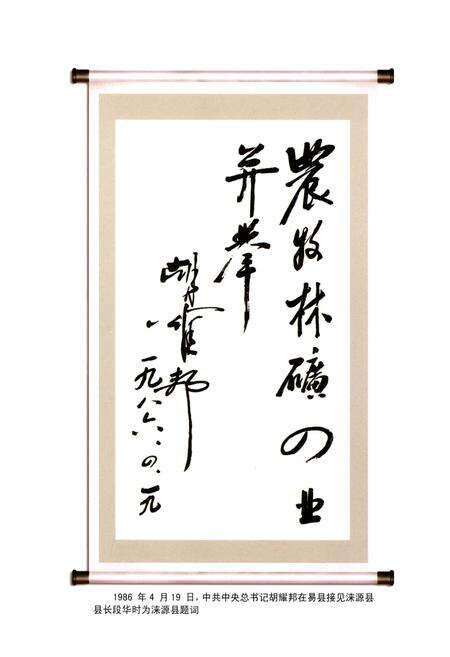 農牧林礦四业
并举
胡耀邦
一九八六、四、一九
1986 年 4 月 19 日，中共中央总书记胡耀邦在易县接见涞源县
县长段华时为涞源县题词